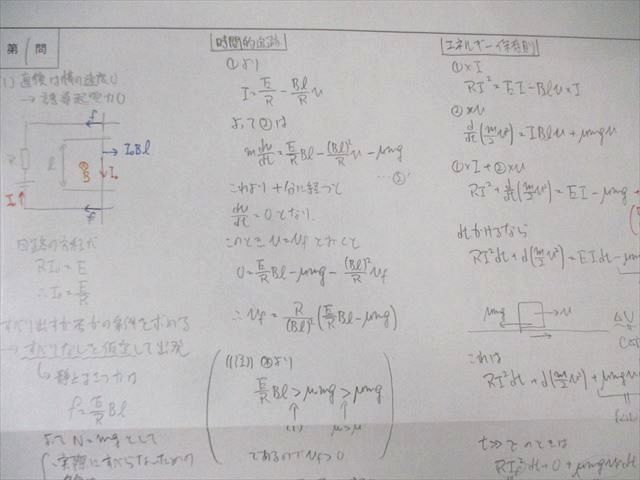 第1問
(1) 直後は棒の速度0
→ 誘導起電力0
f
I₀Bl
R
l
B
I₀
I₀
f
回路の方程式
RI₀ = E
∴ I₀ = E/R
すべり出すか否かの条件を求める
→ すべりなしと仮定して出発
静止まさつ力が
f = E/R Bl
よって N = mg として
実際にすべらないための
時間的追跡
①より
I = E/R - Bl/R v
よって②は
m dv/dt = E/R Bl - (Bl)²/R v - μmg
…②'
これより十分に経つと
dv/dt = 0 となり
このとき v = v_f とおくと
0 = E/R Bl - μmg - (Bl)²/R v_f
∴ v_f = R/(Bl)² (E/R Bl - μmg)
より
E/R Bl > μ₀mg > μmg
↑ ↑
(1) μ₀>μ
であるので v_f > 0
エネルギー保存則
①×I
RI² = EI - Blv×I
②×v
d/dt (m/2 v²) = IBlv + μmgv
①×I + ②×v
RI² + d/dt (m/2 v²) = EI - μmg
dtかけるなら
RI²dt + d(m/2 v²) = EIdt - μm
μmg
→ v
ΔV
これは
RI²dt + d(m/2 v²) + μmgv
t≫ でのときは
RI_f²dt + 0 + μmgv_fdt